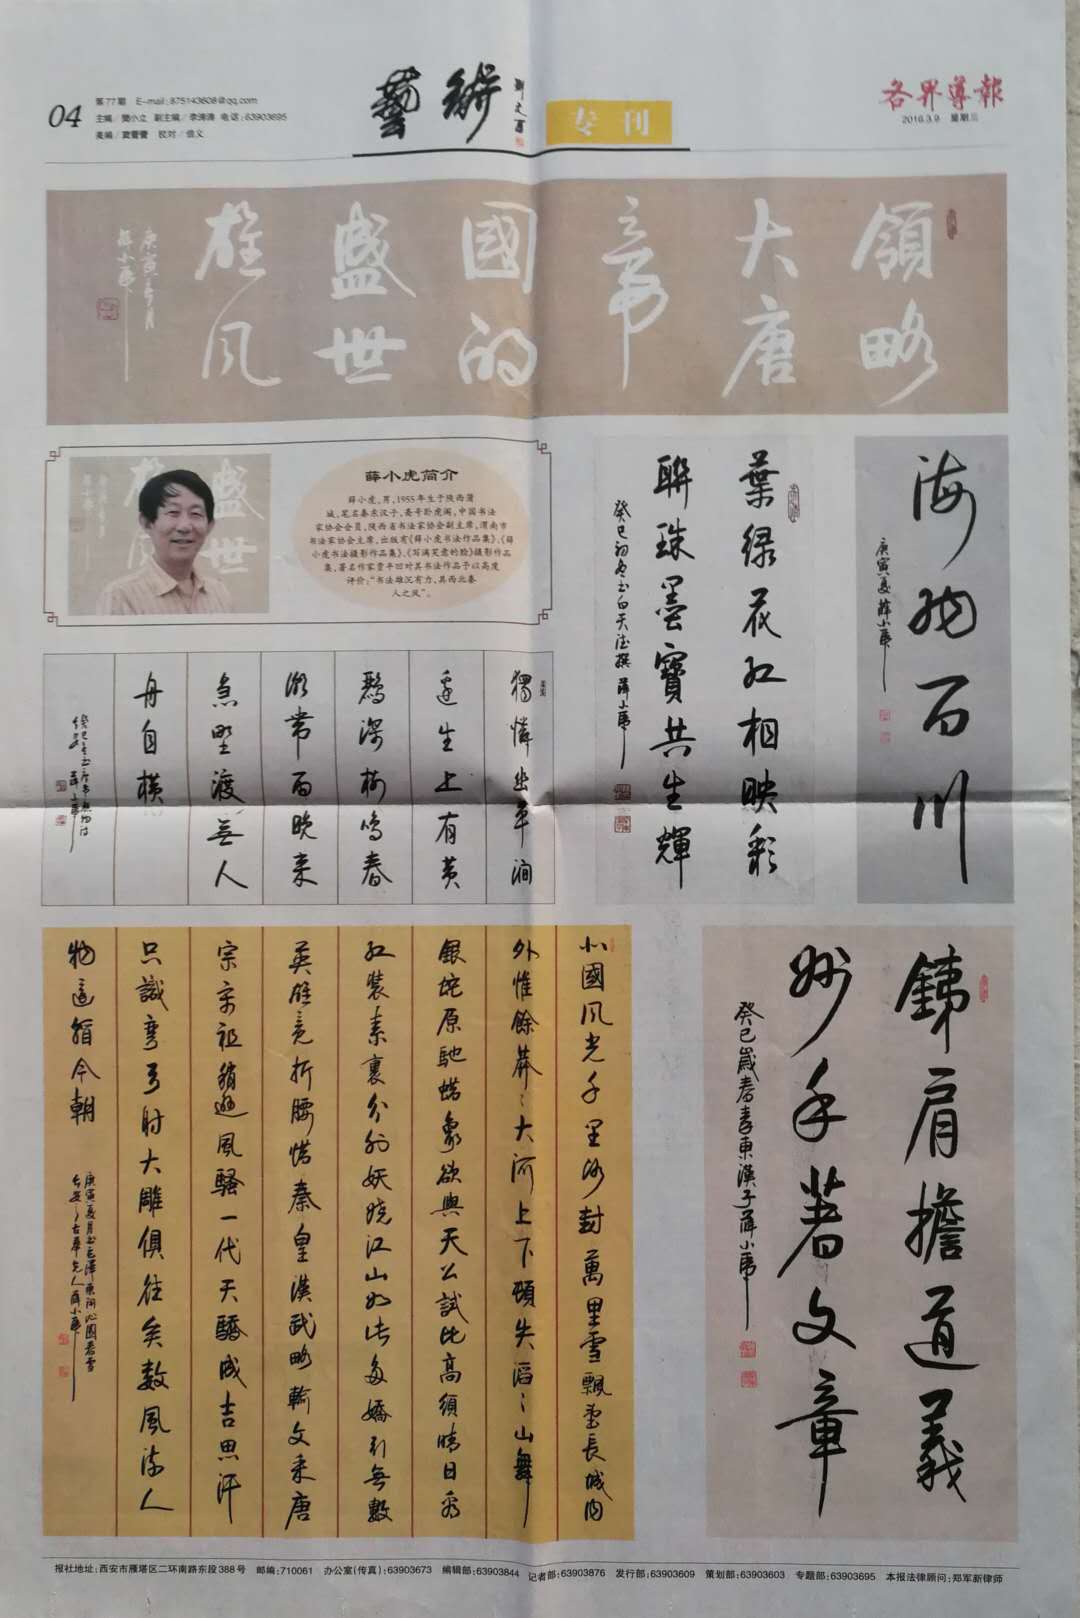 04
第77期 E-mail:875143608@qq.com
主编/樊小立 副主编/李涛涛 电话:63903695
美编/窦蕾蕾 校对/信义
藝術
专刊
各界导報
2016.3.9 星期三
領略
大唐
帝
國的
盛世
雄风
庚寅年月
薛小虎
薛小虎简介
薛小虎,男,1955年生于陕西蒲
城,笔名秦东汉子,斋号卧虎阁,中国书法
家协会会员,陕西省书法家协会副主席,渭南市
书法家协会主席,出版有《薛小虎书法作品集》、《薛
小虎书法摄影作品集》、《写满笑意的脸》摄影作品
集,著名作家贾平凹对其书法作品予以高度
评价:“书法雄沉有力,其西北秦
人之风”。
海纳百川
庚寅夏薛小虎
葉绿花红相映彩
聯珠墨寶共生輝
癸巳初冬书白天德撰 薛小虎
獨憐幽草澗
邊生上有黄
鸝深树鸣春
潮带雨晚来
急野渡無人
舟自横
鉄肩擔道義
妙手著文章
癸巳歲春秦東漢子薛小虎
北國风光千里冰封萬里雪飄望長城内
外惟餘莽ミ大河上下頓失滔ミ山舞
銀蛇原馳蜡象欲與天公試比高須晴日看
红装素裹分外妖娆江山如此多嬌引無數
英雄竞折腰惜秦皇漢武略輸文采唐
宗宋祖稍遜風騷一代天驕成吉思汗
只識弯弓射大雕俱往矣数風流人
物還看今朝
庚寅夏月书毛澤東词沁園春雪
报社地址:西安市雁塔区二环南路东段388号 邮编:710061 办公室(传真):63903673 编辑部:63903844 记者部:63903876 发行部:63903609 策划部:63903603 专题部:63903695 本报法律顾问:郑军新律师